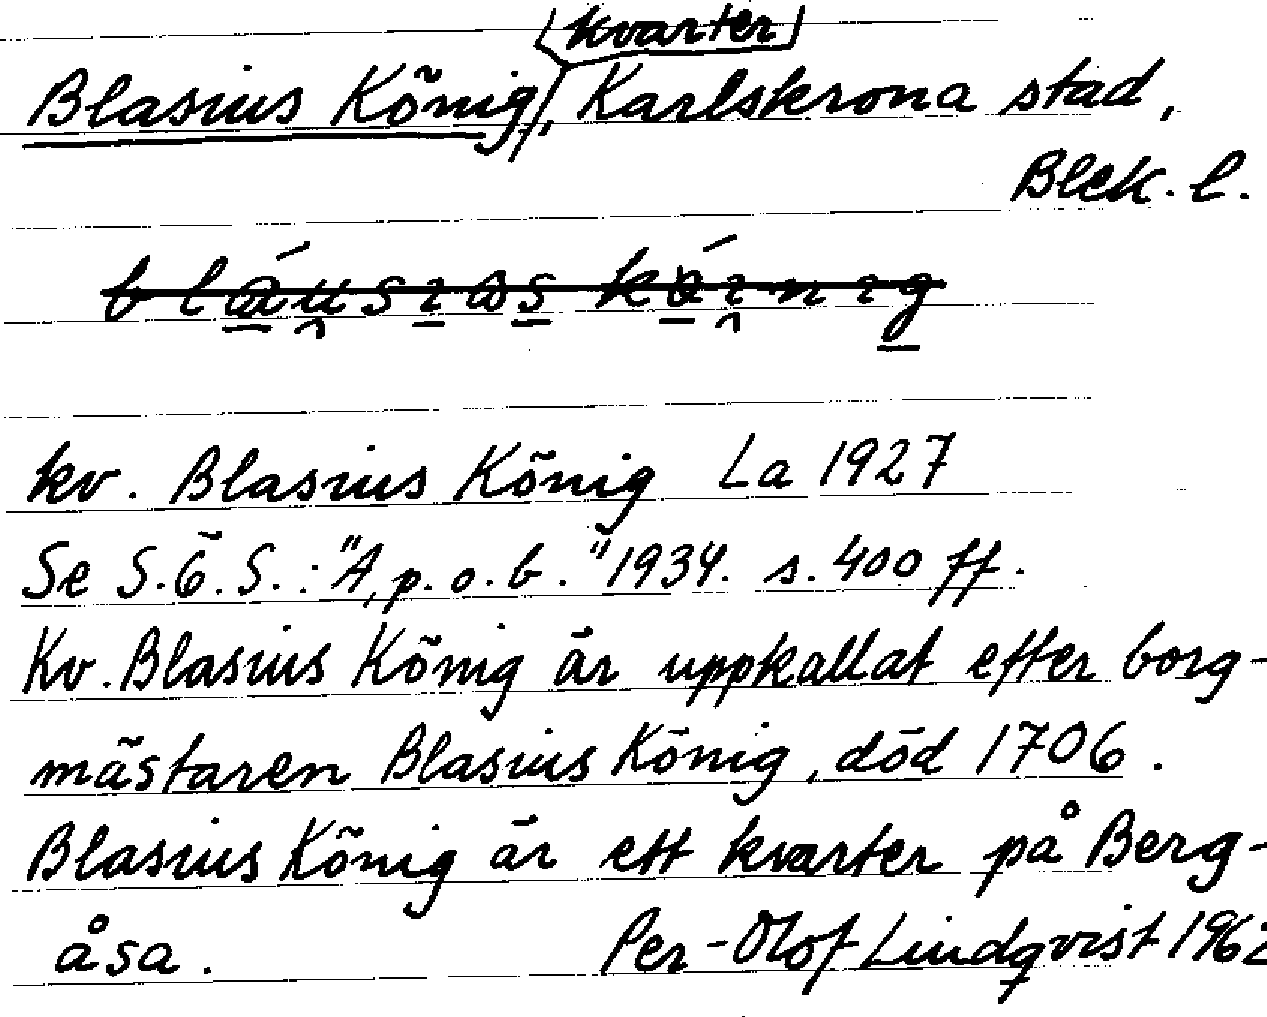 kvarter
Blasius König, Karlskrona stad,
Blek. l.
kv. Blasius König La 1927
Se S.Ö.S.: "A, p. o. b." 1934. s. 400 ff.
Kv. Blasius König är uppkallat efter borg-
mästaren Blasius König, död 1706.
Blasius König är ett kvarter på Berg-
åsa. Per-Olof Lindqvist 1962